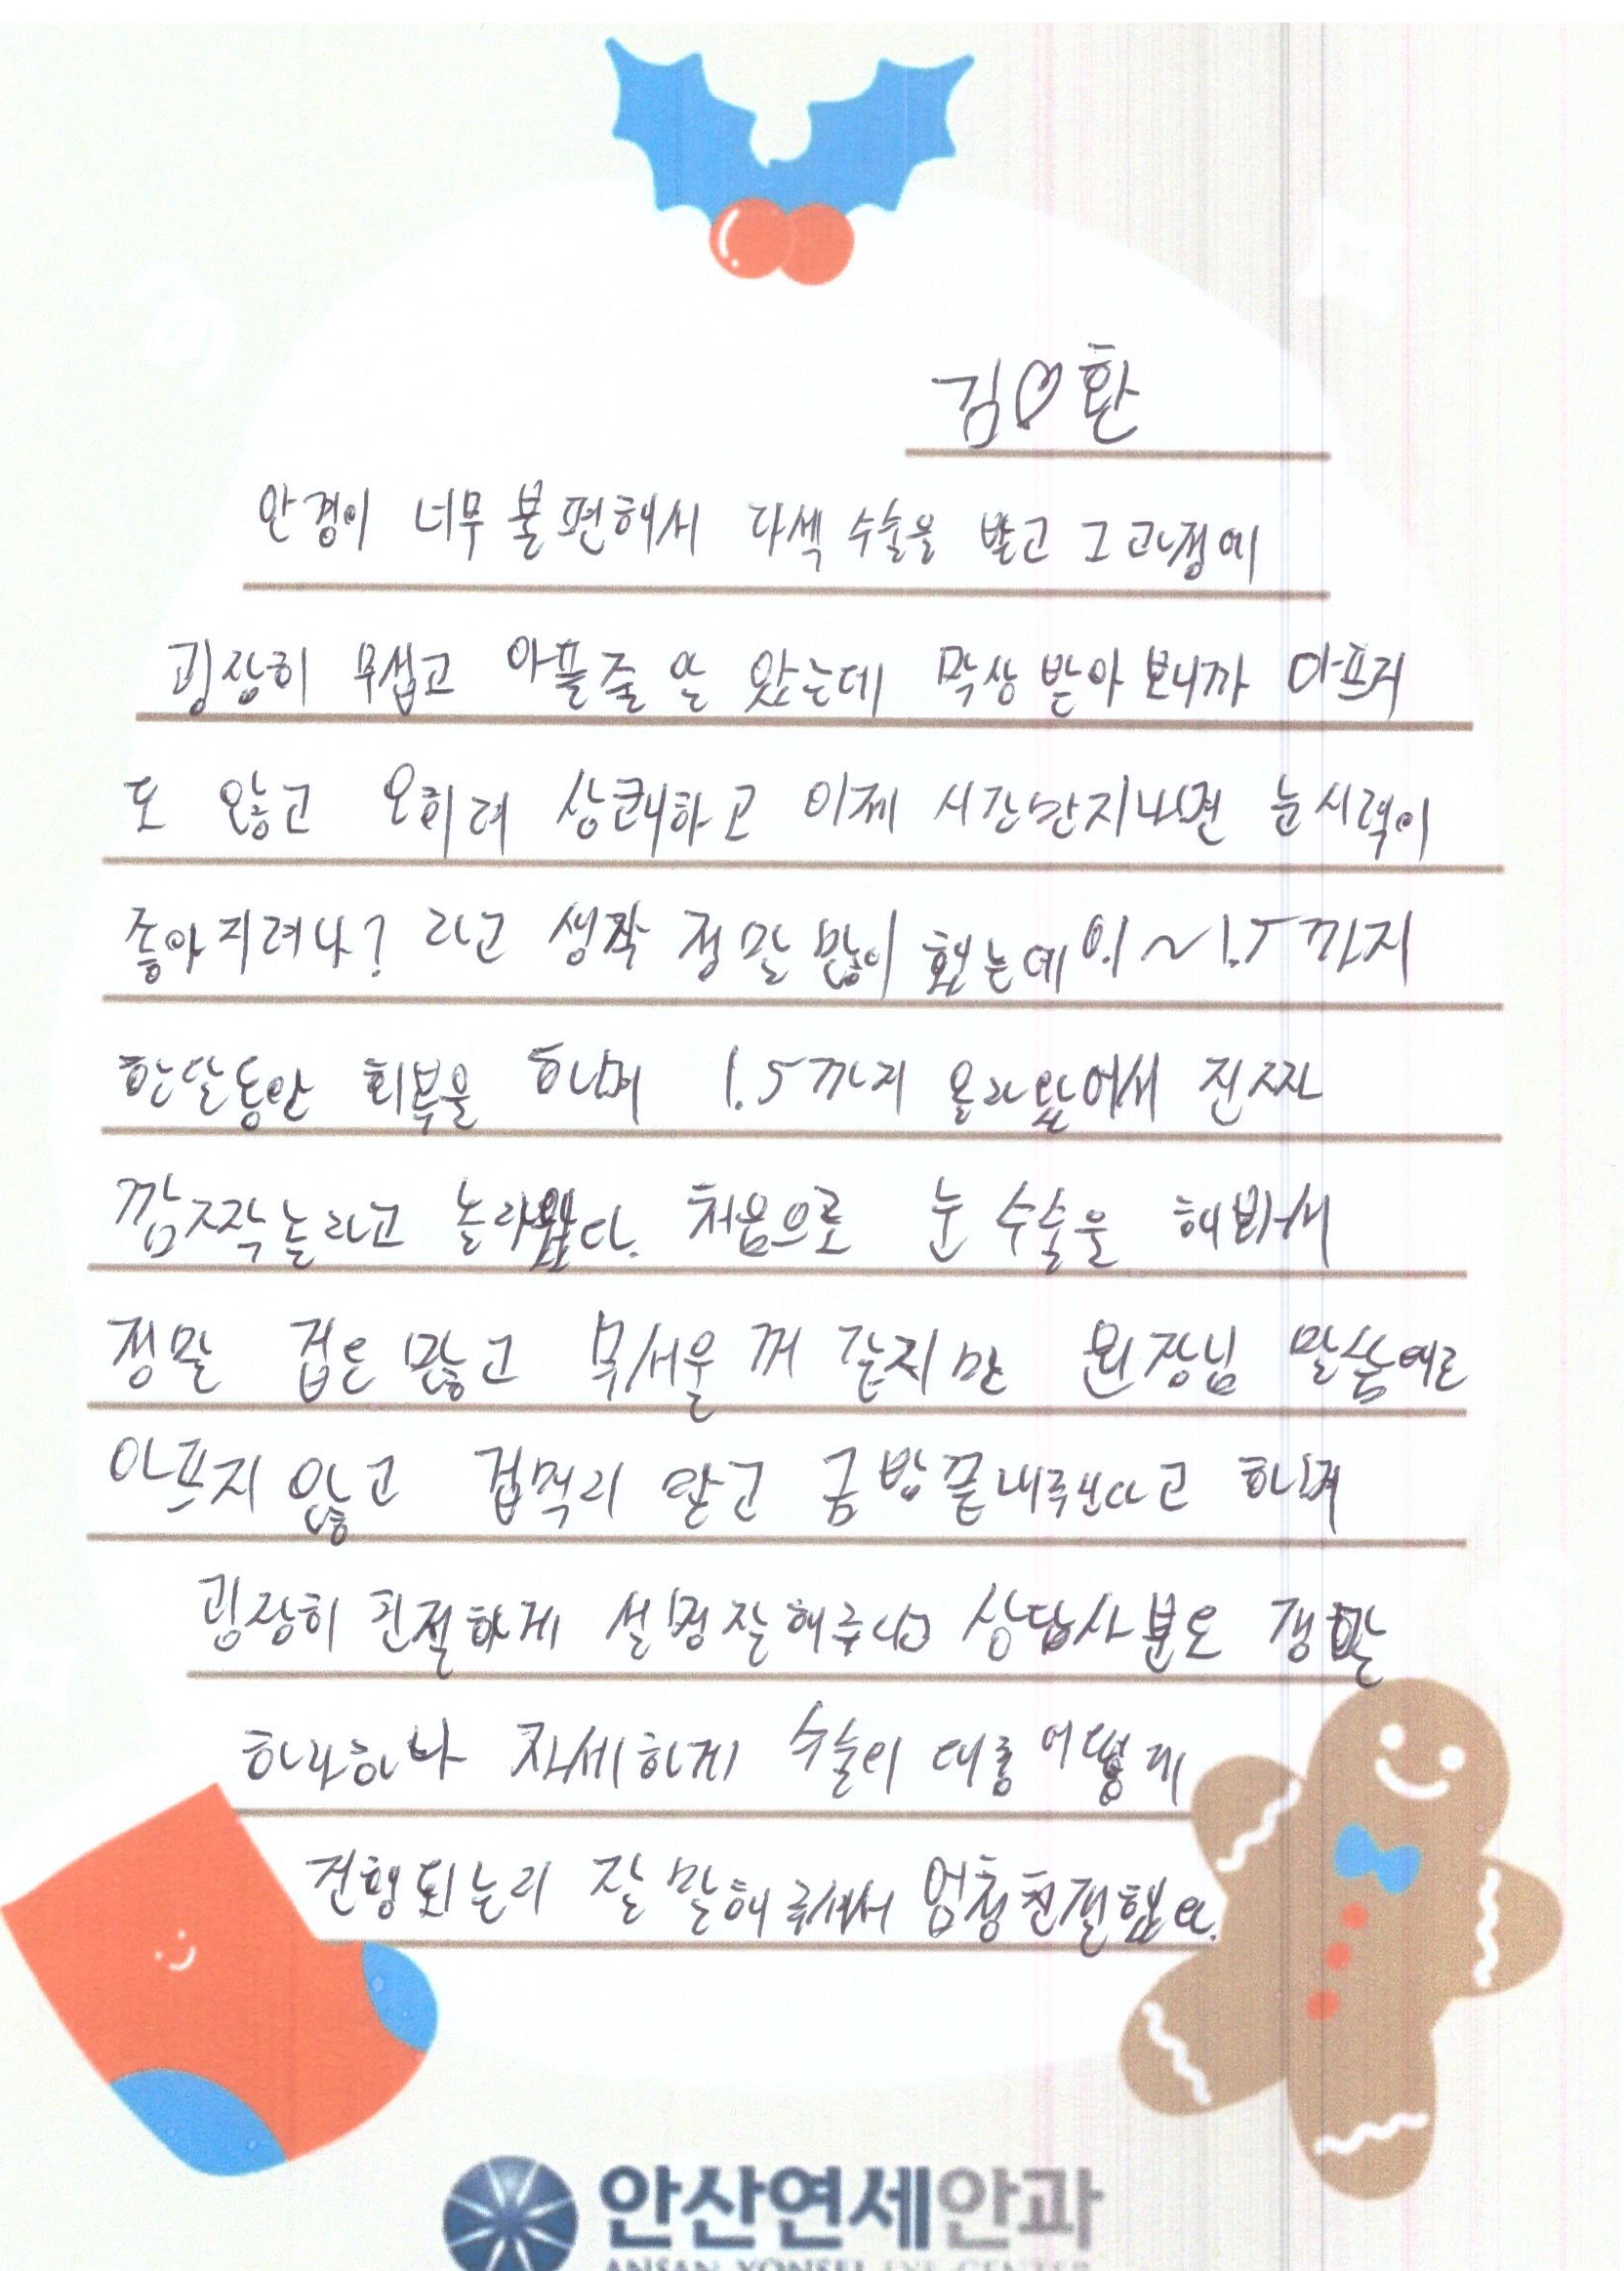 김♡환
안경이 너무 불편해서 다섹 수술을 받고 그 과정에
굉장히 무섭고 아플줄 알 았는데 막상 받아 보니까 아프지
도 않고 오히려 상쾌하고 이제 시간만지나면 눈시력이
좋아지려나? 라고 생각 정말 많이 했는데 0.1 ~ 1.5 까지
한달동안 회복을 하며 1.5까지 올라 왔어서 진짜
깜짝놀라고 놀라웠다. 처음으로 눈 수술을 해봐서
정말 겁은 많고 무서울 꺼 같지만 원장님 말씀대로
아프지 않고 겁먹지 말고 금방끝내준다고 하며
굉장히 친절하게 설명잘해주시고 상담사분도 정말
하나하나 자세하게 수술이 대충 어떻게
진행되는지 잘 말해주셔서 엄청친절했다.
안산연세안과
ANSAN YONSEI EYE CENTER